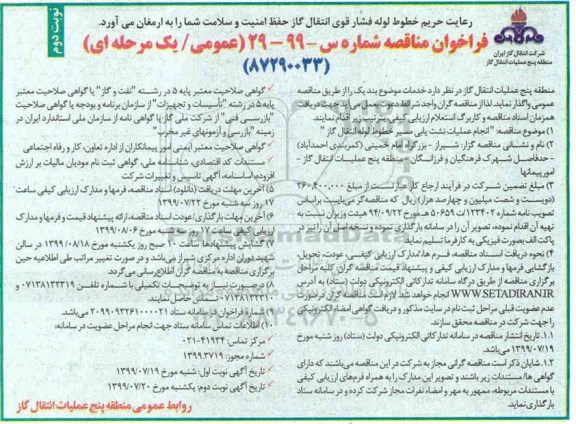 نوبت دوم
رعایت حریم خطوط لوله فشار قوی انتقال گاز حفظ امنیت و سلامت شما را به ارمغان می آورد.
فراخوان مناقصه شماره س - ۹۹ - ۲۹ (عمومی / یک مرحله ای)
(۸۷۲۹۰۰۳۳)
شرکت انتقال گاز ایران
منطقه پنج عملیات انتقال گاز
منطقه پنج عملیات انتقال گاز در نظر دارد خدمات موضوع بند یک را از طریق مناقصه
عمومی واگذار نماید. لذا از مناقصه گران واجد شرایط دعوت بعمل می آید جهت دریافت
همزمان اسناد مناقصه و کاربرگ استعلام ارزیابی کیفی بترتیب زیر اقدام نمایند.
۱) موضوع مناقصه: "انجام عملیات نشت یابی مسیر خطوط لوله انتقال گاز"
۲) نام و نشانی مناقصه گزار: شیراز - بزرگراه امام خمینی (کمربندی احمدآباد)
- حدفاصل شهرک فرهنگیان و فرزانگان - منطقه پنج عملیات انتقال گاز -
امور پیمانها
۳) مبلغ تضمین شرکت در فرآیند ارجاع کار عبارتست از مبلغ ۲۶۰,۴۰۰,۰۰۰
(دویست و شصت میلیون و چهارصد هزار) ریال که مناقصه گر می بایست براساس
تصویب نامه شماره ۱۲۳۴۰۲/ت ۵۰۶۵۹ هـ مورخ ۹۴/۰۹/۲۲ هیئت وزیران نسبت به
تهیه آن اقدام نموده، تصویر آن را در سامانه بارگذاری نموده و نسخه اصل آن را نیز در
پاکت الف بصورت فیزیکی به کارفرما تسلیم نماید.
۴) نحوه دریافت اسناد مناقصه، فرم ها، مدارک ارزیابی کیفی، عودت، تحویل،
بازگشایی فرمها و مدارک ارزیابی کیفی و پیشنهاد قیمت مناقصه گران: کلیه مراحل
برگزاری مناقصه از طریق درگاه سامانه تدارکاتی الکترونیکی دولت (ستاد) به آدرس
WWW.SETADIRAN.IR انجام خواهد شد. لازم است مناقصه گران درصورت
عدم عضویت قبلی مراحل ثبت نام در سایت مذکور و دریافت گواهی امضاء الکترونیکی
را جهت شرکت در مناقصه محقق سازند.
۱.۱. تاریخ انتشار مناقصه در سامانه تدارکاتی الکترونیکی دولت (ستاد) روز شنبه مورخ
۱۳۹۹/۰۷/۱۹ می باشد.
۱.۲. شایان ذکر است مناقصه گرانی مجاز به شرکت در این مناقصه می باشند که دارای
گواهی ها/مستندات زیر باشند و تصویر این مدارک را به همراه فرم های ارزیابی کیفی
با مستندات مربوطه، ممهور به مهر و امضاء نفرات مجاز شرکت کرده و در سامانه ستاد
بارگذاری نماید.
✓ گواهی صلاحیت معتبر پایه ۵ در رشته "نفت و گاز" یا گواهی صلاحیت معتبر
پایه ۵ در رشته "تأسیسات و تجهیزات" از سازمان برنامه و بودجه یا گواهی صلاحیت
"بازرسی فنی" از شرکت ملی گاز یا گواهی نامه از سازمان ملی استاندارد ایران در
زمینه "بازرسی و آزمونهای غیر مخرب"
✓ گواهی صلاحیت معتبر ایمنی امور پیمانکاران از اداره تعاون، کار و رفاه اجتماعی
✓ مستندات کد اقتصادی، شناسه ملی، گواهی ثبت نام مودیان مالیات بر ارزش
افزوده، اساسنامه، آگهی تاسیس و تغییرات شرکت
۵) آخرین مهلت دریافت (دانلود) اسناد مناقصه، فرمها و مدارک ارزیابی کیفی ساعت
۱۷ روز سه شنبه مورخ ۱۳۹۹/۰۷/۲۲
۶) آخرین مهلت بارگذاری/عودت اسناد مناقصه، ارائه پیشنهاد قیمت و فرمها و مدارک
ارزیابی کیفی ساعت ۱۷ روز سه شنبه مورخ ۱۳۹۹/۰۸/۰۶
۷) گشایش پیشنهادها ساعت ۱۰ صبح روز یکشنبه مورخ ۱۳۹۹/۰۸/۱۸ در سالن
شهید دوران اداره مرکزی شیراز می باشد و در صورت تغییر مراتب طی اطلاعیه حین
برگزاری مناقصه به مناقصه گران اطلاع رسانی می گردد.
۸) درصورت نیاز به توضیحات تکمیلی با شماره تلفن ۰۷۱۳۸۱۳۳۳۱۹ و
۰۷۱۳۸۱۳۳۳۱۰ تماس حاصل نمایند.
۹) شماره فراخوان در سامانه ستاد ۲۰۹۹۰۹۳۲۶۱۰۰۰۰۲۱ می باشد.
۱۰) اطلاعات تماس سامانه ستاد جهت انجام مراحل عضویت در سامانه:
✓ مرکز تماس: ۴۱۹۳۴-۰۲۱
✓ شماره مجوز: ۱۳۹۹.۳۷۱۹
✓ تاریخ آگهی نوبت اول: شنبه مورخ ۱۳۹۹/۰۷/۱۹
✓ تاریخ آگهی نوبت دوم: یکشنبه مورخ ۱۳۹۹/۰۷/۲۰
روابط عمومی منطقه پنج عملیات انتقال گاز